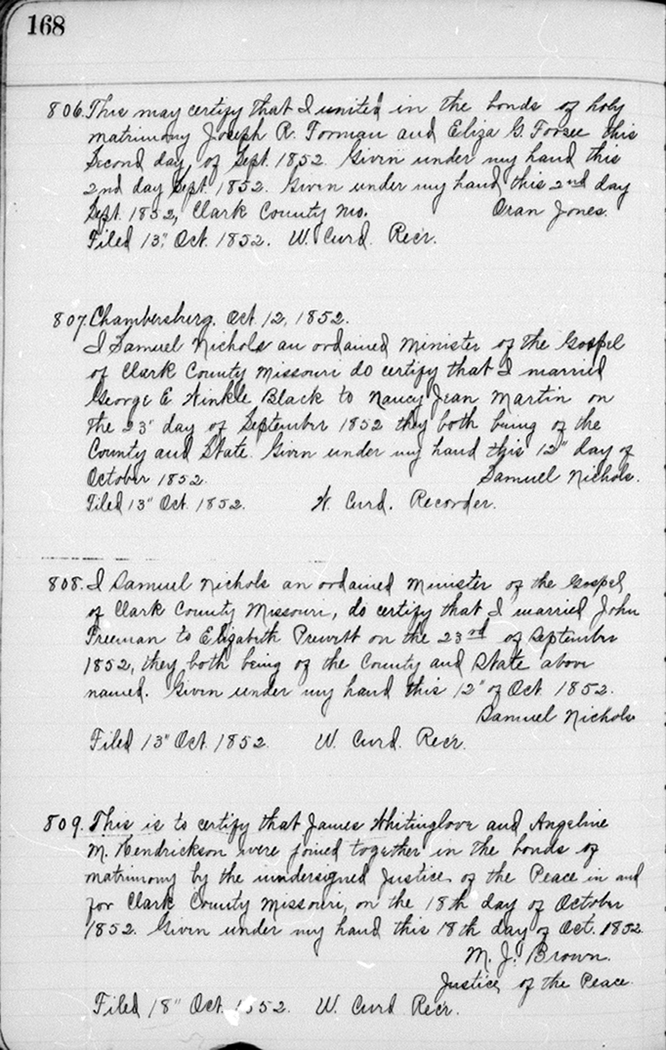 168
806. This may certify that I united in the bonds of holy
matrimony Joseph R. Forman and Eliza G. Forsee this
Second day of Sept. 1852. Given under my hand this
2nd day Sept. 1852. Given under my hand this 2nd day
Sept. 1852, Clark County Mo. Oran Jones.
Filed 13" Oct. 1852. W. Curd. Recr.
807. Chambersburg. Oct 12, 1852.
I Samuel Nichols an ordained Minister of the Gospel
of Clark County Missouri do certify that I married
George E Winkle Black to Nancy Jean Martin on
the 23" day of September 1852 they both being of the
County and State. Given under my hand this 12" day of
October 1852. Samuel Nichols.
Filed 13" Oct. 1852. W. Curd. Recorder.
808. I Samuel Nichols an ordained Minister of the Gospel
of Clark County Missouri, do certify that I married John
Freeman to Elizabeth Prewitt on the 23rd of September
1852, they both being of the County and State above
named. Given under my hand this 12" of Oct. 1852.
Samuel Nichols
Filed 13" Oct. 1852. W. Curd. Recr.
809. This is to certify that James Whitinglove and Angeline
M. Hendrickson were joined together in the bonds of
matrimony by the undersigned Justice of the Peace in and
for Clark County Missouri, on the 18th day of October
1852. Given under my hand this 18th day of Oct. 1852.
M. J. Brown.
Justice of the Peace.
Filed 18" Oct. 1852. W. Curd Recr.